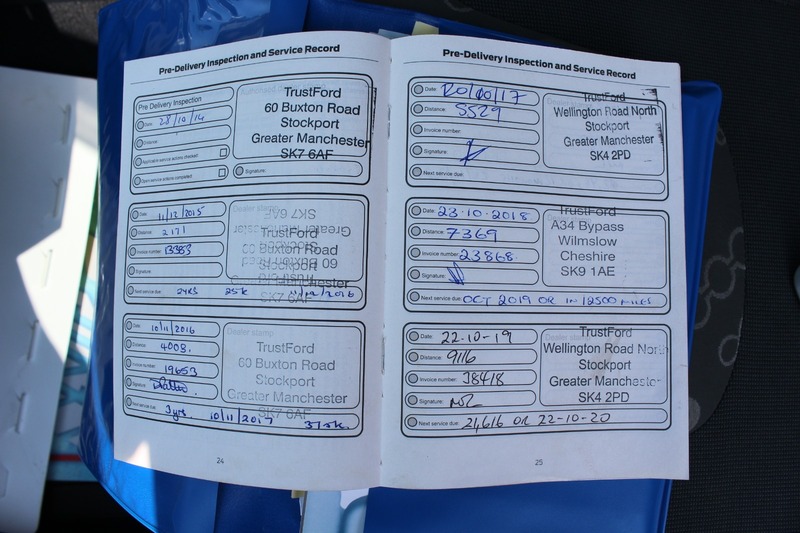 Pre-Delivery Inspection and Service Record
Pre Delivery Inspection
Date: 28/10/14
Distance:
Applicable service actions checked
Open service actions completed
Signature:
TrustFord
60 Buxton Road
Stockport
Greater Manchester
SK7 6AF
Date: 11/12/2015
Distance: 2171
Invoice number: 13383
Signature:
Next service due: 2yrs 25k 11/12/2016
Dealer stamp
TrustFord
60 Buxton Road
Stockport
Manchester
SK7 6AF
Date: 10/11/2016
Distance: 4008.
Invoice number: 19653
Signature:
Next service due: 3yrs 10/11/2017 37.5k.
Dealer stamp
TrustFord
60 Buxton Road
Stockport
Greater Manchester
SK7 6AF
24
Pre-Delivery Inspection and Service Record
Date: 20/10/17
Distance: 5529
Invoice number:
Signature:
Next service due:
TrustFord
Wellington Road North
Stockport
Greater Manchester
SK4 2PD
Date: 23-10-2018
Distance: 7369
Invoice number: 23868
Signature:
Next service due: OCT 2019 OR IN 12500 MILES
TrustFord
A34 Bypass
Wilmslow
Cheshire
SK9 1AE
Date: 22-10-19
Distance: 9116
Invoice number: 38418
Signature:
Next service due: 21,616 OR 22-10-20
TrustFord
Wellington Road North
Stockport
Greater Manchester
SK4 2PD
25